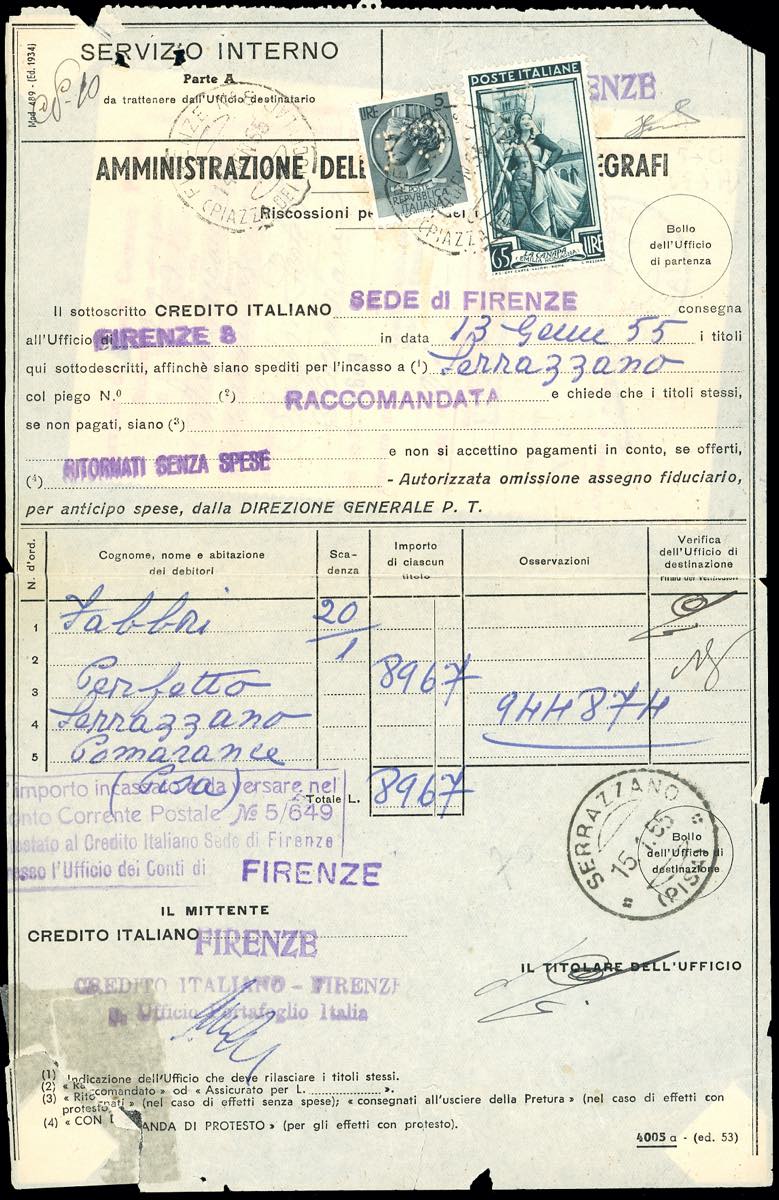 Mod. 489 - (Ed. 1934)
SERVIZIO INTERNO
Parte A
da trattenere dall'Ufficio destinatario
FIRENZE
(PIAZZA DEI
LIRE 5
POSTE
REPVBBLICA
ITALIANA
POSTE ITALIANE
LA CANAPA
EMILIA ROMAGNA
65 LIRE
FIRENZE
(PIAZZA
AMMINISTRAZIONE DELLE EGRAFI
Riscossioni pe
Bollo
dell'Ufficio
di partenza
Il sottoscritto CREDITO ITALIANO SEDE di FIRENZE consegna
all'Ufficio di FIRENZE 8 in data 13 Genn 55 i titoli
qui sottodescritti, affinchè siano spediti per l'incasso a (1) Serrazzano
col piego N.º (2) RACCOMANDATA e chiede che i titoli stessi,
se non pagati, siano (3)
RITORNATI SENZA SPESE e non si accettino pagamenti in conto, se offerti,
(4) - Autorizzata omissione assegno fiduciario,
per anticipo spese, dalla DIREZIONE GENERALE P. T.
N. d'ord.
Cognome, nome e abitazione
dei debitori
Sca-
denza
Importo
di ciascun
titolo
Osservazioni
Verifica
dell'Ufficio di
destinazione
Firma dei verificatori
1 Fabbri 20/1
2
3 Perfetto 8967
4 Serrazzano 944874
5 Pomarance
(Pisa)
Totale L. 8967
importo incassato è da versare nel
onto Corrente Postale № 5/649
estato al Credito Italiano Sede di Firenze
resso l'Ufficio dei Conti di FIRENZE
SERRAZZANO
15.1.55
(PISA)
Bollo
dell'Ufficio di
destinazione
IL MITTENTE
CREDITO ITALIANO FIRENZE
CREDITO ITALIANO - FIRENZE
Ufficio Portafoglio Italia
IL TITOLARE DELL'UFFICIO
(1) Indicazione dell'Ufficio che deve rilasciare i titoli stessi.
(2) « Raccomandato » od « Assicurato per L. ».
(3) « Rito gnati » (nel caso di effetti senza spese); « consegnati all'usciere della Pretura » (nel caso di effetti con
protesto
(4) « CON D ANDA DI PROTESTO » (per gli effetti con protesto).
4005 a - (ed. 53)